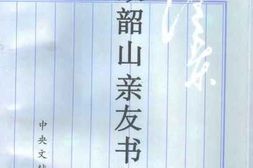 韶山亲友书
泽东
中央文